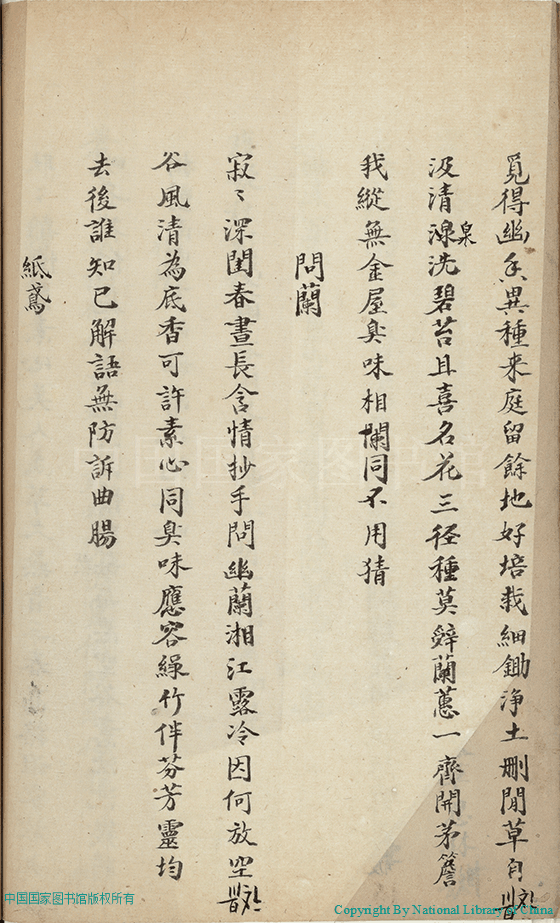 覓得幽香異種来庭留餘地好培栽細鋤浄土刪閒草自
汲清湶泉洗碧苔且喜名花三径種莫辤蘭蕙一齊開茅簷
我縱無金屋臭味相闌同不用猜
問蘭
寂〻深閨春晝長含情抄手問幽蘭湘江露冷因何放空
谷風清為底香可許素心同臭味應容緑竹伴芬芳靈均
去後誰知已解語無防訴曲腸
紙鳶
中国国家图书馆版权所有
Copyright By National Library of China